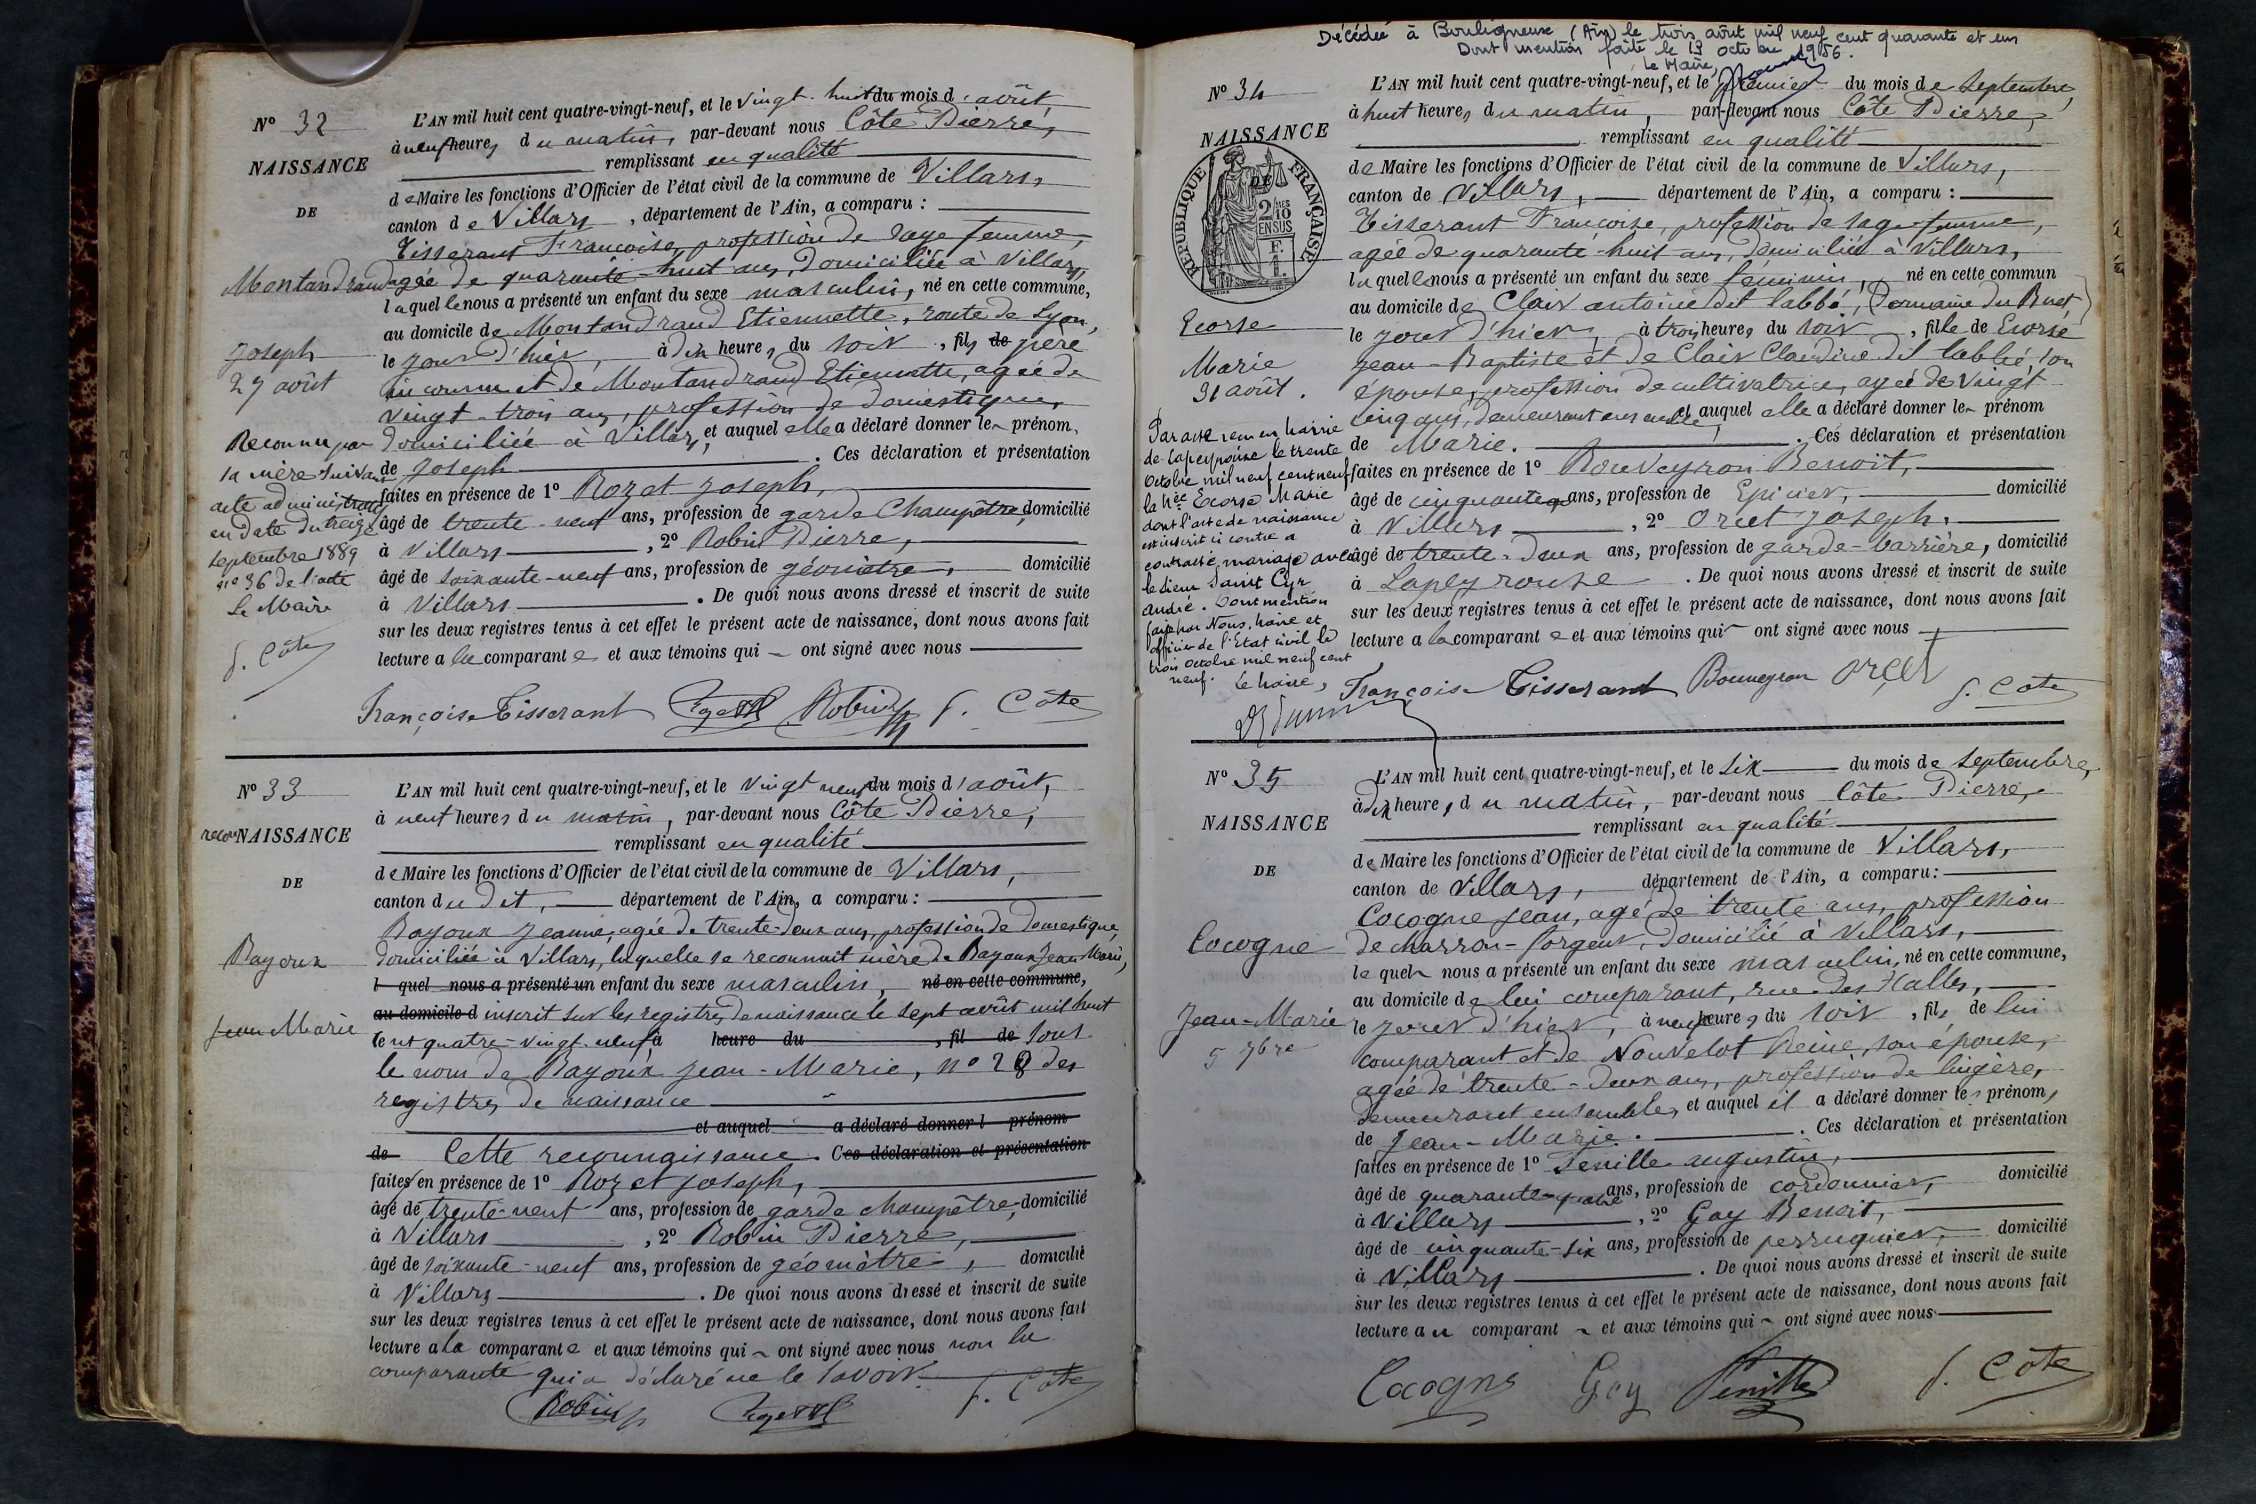 N° 32
NAISSANCE
DE
Montandraud
Joseph
27 août
Reconnu par
sa mère suivant
acte administratif
en date du treize
septembre 1889
n° 36 de l'acte
Le Maire
P. Côte
L'AN mil huit cent quatre-vingt-neuf, et le vingt-huit du mois d'août,
à neuf heures du matin, par-devant nous Côte Pierre,
remplissant en qualité
de Maire les fonctions d'Officier de l'état civil de la commune de Villars,
canton de Villars, département de l'Ain, a comparu :
Tisserant Françoise, profession de sage femme,
agée de quarante-huit ans, domiciliée à Villars,
laquelle nous a présenté un enfant du sexe masculin, né en cette commune,
au domicile de Montandraud Etiennette, route de Lyon,
le jour d'hier, à dix heures du soir, fils de père
inconnu et de Montandraud Etiennette, agée de
vingt-trois ans, profession de domestique,
domiciliée à Villars, et auquel elle a déclaré donner le prénom
de Joseph. Ces déclaration et présentation
faites en présence de 1° Rozet Joseph,
âgé de trente-neuf ans, profession de garde Champêtre, domicilié
à Villars, 2° Robin Pierre,
âgé de soixante-neuf ans, profession de géomètre, domicilié
à Villars. De quoi nous avons dressé et inscrit de suite
sur les deux registres tenus à cet effet le présent acte de naissance, dont nous avons fait
lecture a la comparante et aux témoins qui ont signé avec nous
Françoise Tisserant Robin P. Côte
N° 33
recon NAISSANCE
DE
Bayoux
Jean Marie
L'AN mil huit cent quatre-vingt-neuf, et le vingt neuf du mois d'août,
à neuf heures du matin, par-devant nous Côte Pierre,
remplissant en qualité
de Maire les fonctions d'Officier de l'état civil de la commune de Villars,
canton du dit, département de l'Ain, a comparu :
Bayoux Jeanne, agée de trente-deux ans, profession de domestique,
domiciliée à Villars, laquelle se reconnait mère de Bayoux Jean Marie,
l quel nous a présenté un enfant du sexe masculin, né en cette commune,
au domicile d inscrit sur les registres de naissance le sept août mil huit
cent quatre-vingt-neuf à heure du , fil de sous
le nom de Bayoux Jean-Marie, n° 28 des
registres de naissance
et auquel a déclaré donner l prénom
de Cette reconnaissance. Ces déclaration et présentation
faites en présence de 1° Rozet Joseph,
âgé de trente-neuf ans, profession de garde champêtre, domicilié
à Villars, 2° Robin Pierre,
âgé de soixante-neuf ans, profession de géomètre, domicilié
à Villars. De quoi nous avons dressé et inscrit de suite
sur les deux registres tenus à cet effet le présent acte de naissance, dont nous avons fait
lecture a la comparante et aux témoins qui ont signé avec nous non la
comparante qui a déclaré ne le savoir.
Robin P. Côte
Décédée à Bouligneux (Ain) le trois août mil neuf cent quarante et un
Dont mention faite le 13 octobre 1956.
Le Maire,
N° 34
NAISSANCE
DE
RÉPUBLIQUE FRANÇAISE
2/10 EN SUS
Ecorse
Marie
31 août.
Par acte reçu en mairie
de Lapeyrouse le trente
octobre mil neuf cent neuf
la née Ecorse Marie
dont l'acte de naissance
est inscrit ci contre a
contracté mariage avec
le sieur Saint Cyr
André. Dont mention
faite par Nous, maire et
officier de l'Etat civil le
trois octobre mil neuf cent
neuf. Le maire,
L'AN mil huit cent quatre-vingt-neuf, et le premier du mois de septembre,
à huit heures du matin, par-devant nous Côte Pierre,
remplissant en qualité
de Maire les fonctions d'Officier de l'état civil de la commune de Villars,
canton de Villars, département de l'Ain, a comparu :
Tisserant Françoise, profession de sage-femme,
agée de quarante-huit ans, domiciliée à Villars,
laquelle nous a présenté un enfant du sexe feminin, né en cette commun
au domicile de Clair antoine dit labbé, (Domaine du Buet)
le jour d'hier, à trois heures du soir, fille de Ecorse
Jean-Baptiste et de Clair Claudine dit labbé, son
épouse, profession de cultivatrice, agée de vingt
cinq ans, demeurant ensemble, et auquel elle a déclaré donner le prénom
de Marie. Ces déclaration et présentation
faites en présence de 1° Bouveyron Benoit,
âgé de cinquante ans, profession de Epicier, domicilié
à Villars, 2° Orcet Joseph,
âgé de trente-deux ans, profession de garde-barrière, domicilié
à Lapeyrouse. De quoi nous avons dressé et inscrit de suite
sur les deux registres tenus à cet effet le présent acte de naissance, dont nous avons fait
lecture a la comparante et aux témoins qui ont signé avec nous
Françoise Tisserant Bouveyron Orcet P. Côte
N° 35
NAISSANCE
DE
Cocogne
Jean-Marie
5 7bre
L'AN mil huit cent quatre-vingt-neuf, et le six du mois de septembre,
à dix heures du matin, par-devant nous Côte Pierre,
remplissant en qualité
de Maire les fonctions d'Officier de l'état civil de la commune de Villars,
canton de Villars, département de l'Ain, a comparu :
Cocogne Jean, agé de trente ans, profession
de charron-forgeur, domicilié à Villars,
lequel nous a présenté un enfant du sexe masculin, né en cette commune,
au domicile de lui comparant, rue des Halles,
le jour d'hier, à neuf heures du soir, fils de lui
comparant et de Nouvelot Reine, son épouse,
agée de trente-deux ans, profession de lingère,
demeurant ensemble, et auquel il a déclaré donner les prénoms
de Jean-Marie. Ces déclaration et présentation
faites en présence de 1° Fenille augustin,
âgé de quarante-quatre ans, profession de cordonnier, domicilié
à Villars, 2° Goy Benoit,
âgé de cinquante-six ans, profession de perruquier, domicilié
à Villars. De quoi nous avons dressé et inscrit de suite
sur les deux registres tenus à cet effet le présent acte de naissance, dont nous avons fait
lecture au comparant et aux témoins qui ont signé avec nous
Cocogne Goy Fenille P. Côte